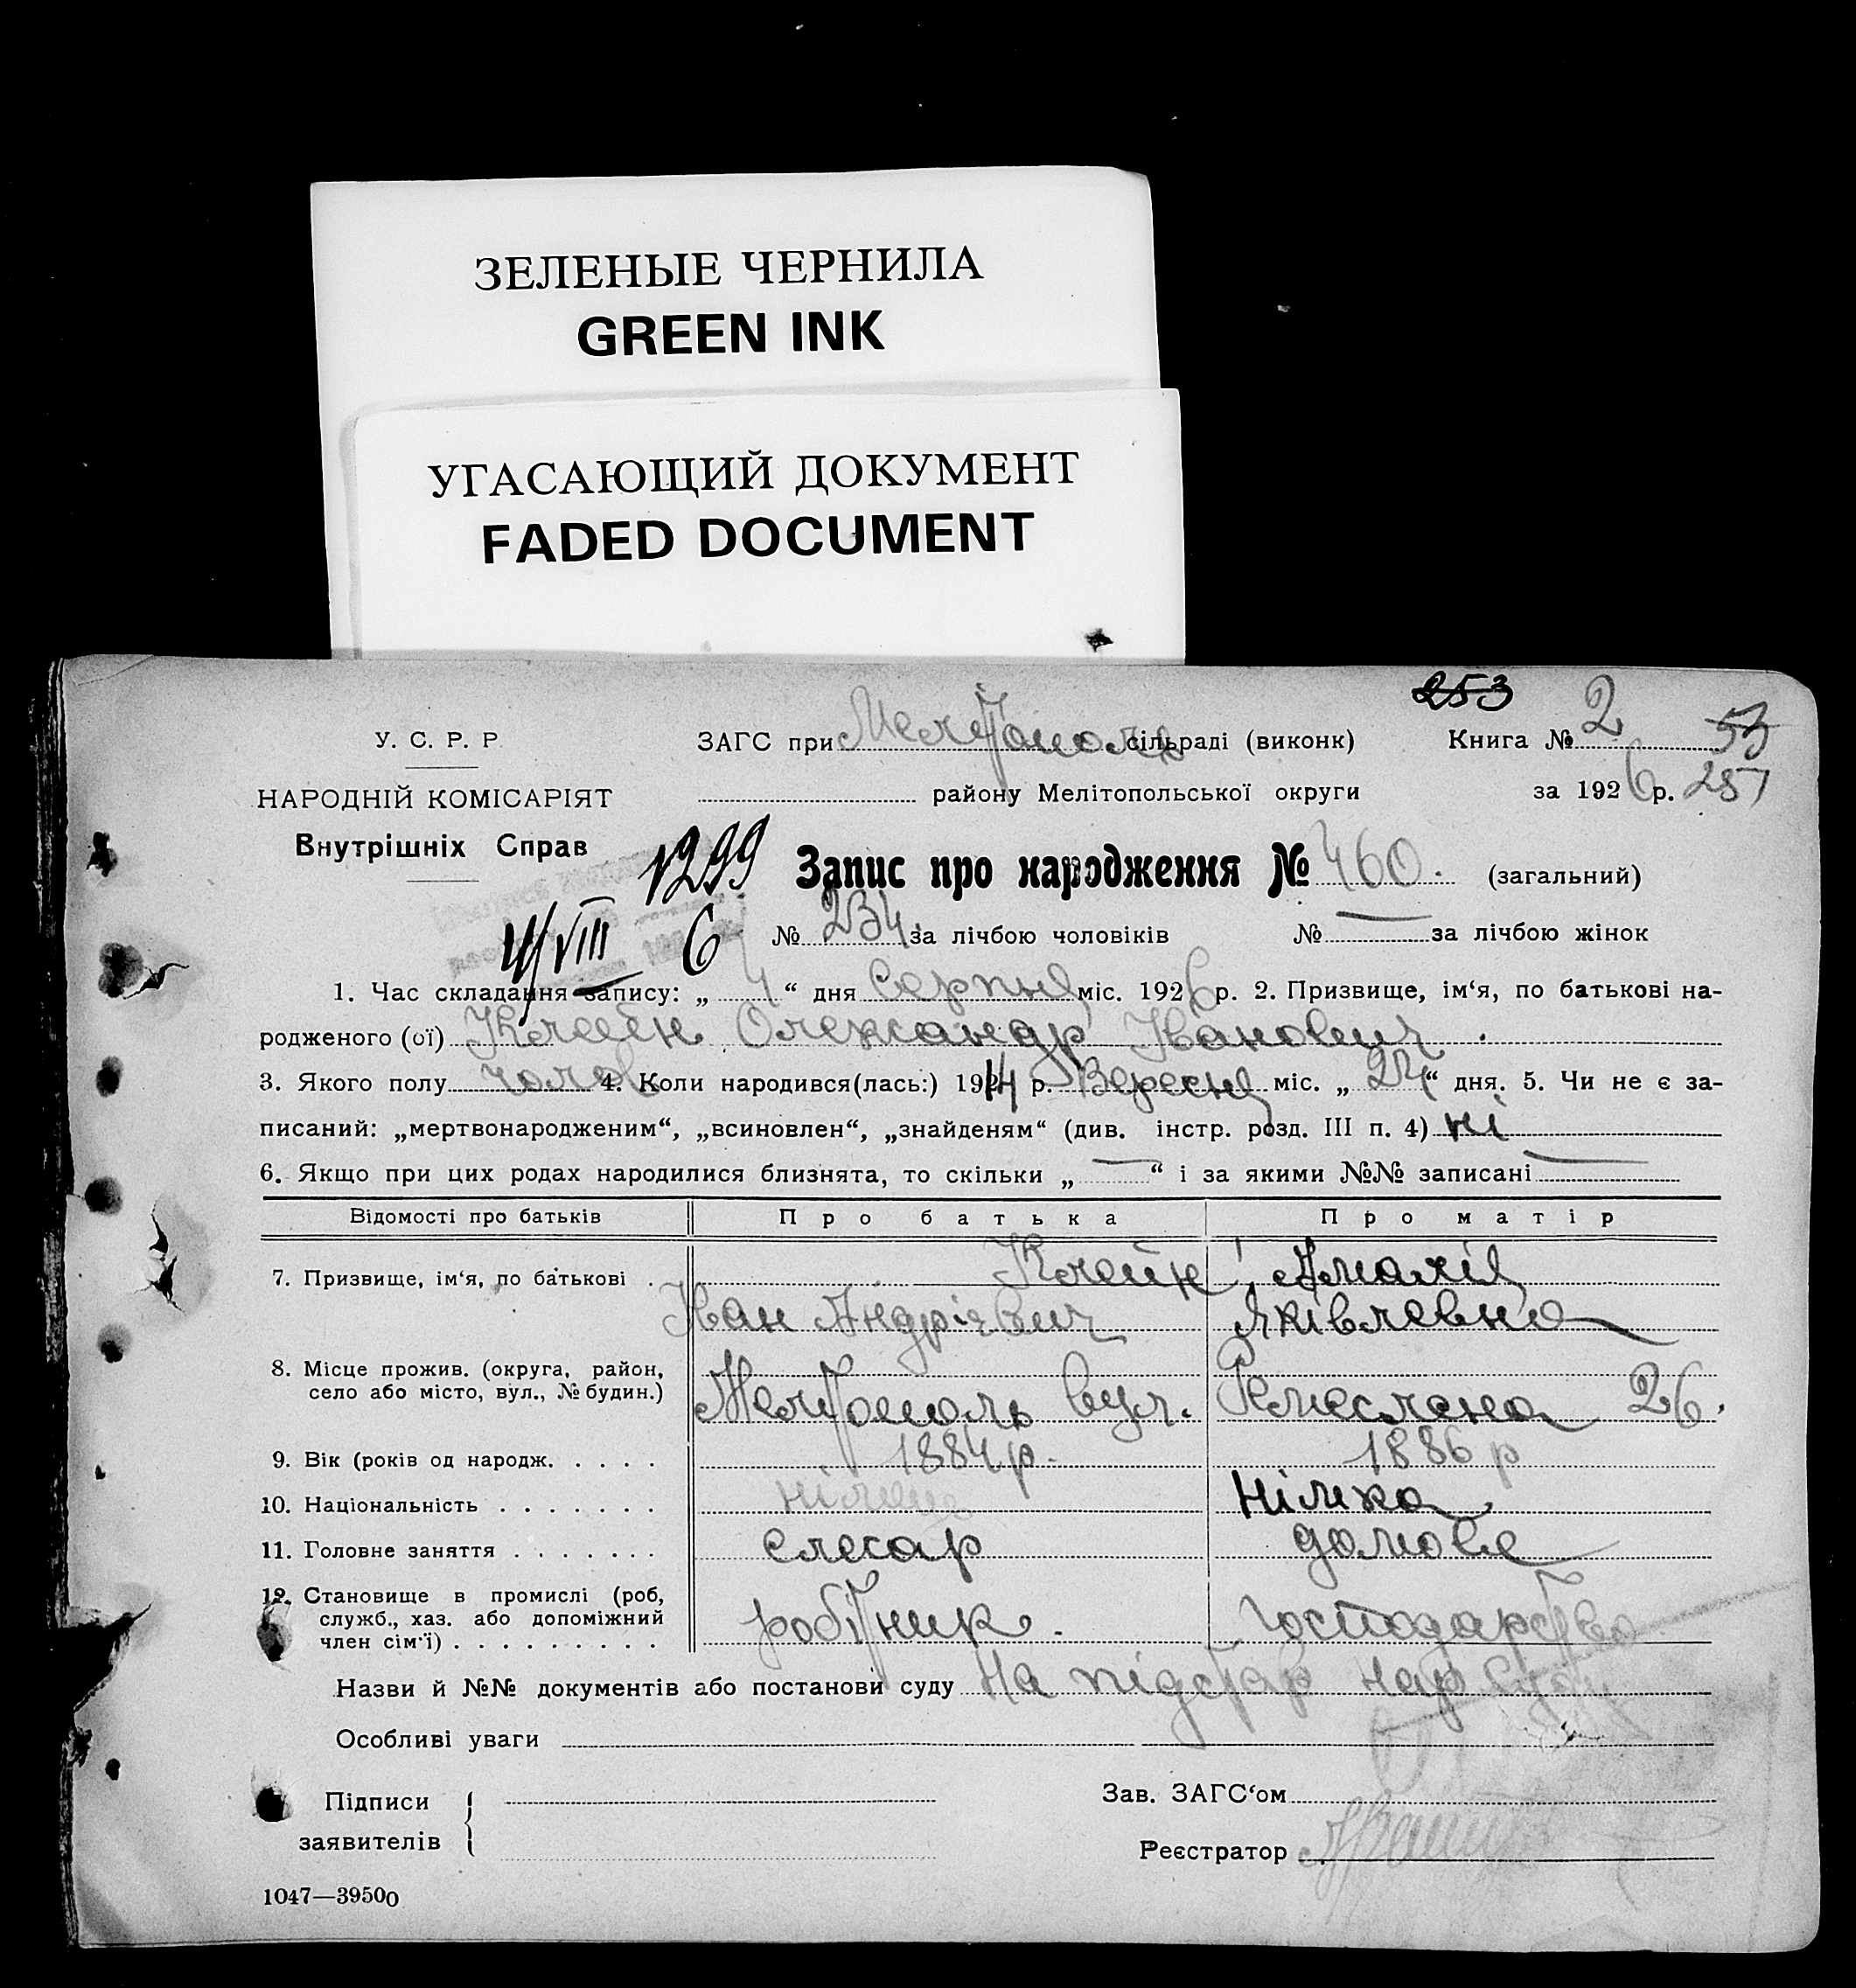 ЗЕЛЕНЫЕ ЧЕРНИЛА
GREEN INK
УГАСАЮЩИЙ ДОКУМЕНТ
FADED DOCUMENT
253
У. С. Р. Р. ЗАГС при Мелітополь сільраді (виконк) Книга № 2 53
НАРОДНІЙ КОМІСАРІЯТ району Мелітопольської округи за 1926 р. 257
Внутрішніх Справ
1299 Запис про народження № 460. (загальний)
4/VIII 6 № 234 за лічбою чоловіків № — за лічбою жінок
1. Час складання запису: „ 4 “ дня Серпня міс. 1926 р. 2. Призвище, ім‘я, по батькові на-
родженого (ої) Клейн Олександр Іванович.
3. Якого полу чолов 4. Коли народився(лась:) 1914 р. Вересня міс. „ 24 “ дня. 5. Чи не є за-
писаний: „мертвонародженим“, „всиновлен“, „знайденям“ (див. інстр. розд. III п. 4) ні
6. Якщо при цих родах народилися близнята, то скільки „ — “ і за якими №№ записані —
Відомості про батьків Про батька Про матір
7. Призвище, ім‘я, по батькові . Клейн Амалія
Іван Андрієвич Яківлевна
8. Місце прожив. (округа, район,
село або місто, вул., № будин.) Мелітополь вул. Ремеслена 26.
9. Вік (років од народж. . . . . 1884 р. 1886 р
10. Національність . . . . . . . німець Німка
11. Головне заняття . . . . . . . слесар домове
12. Становище в промислі (роб,
служб., хаз. або допоміжний
член сім‘ї) . . . . . . . . . робітник. господарство
Назви й №№ документів або постанови суду На підстав нар суду
Особливі уваги
Підписи Зав. ЗАГС‘ом
заявителів Реєстратор
1047—39500